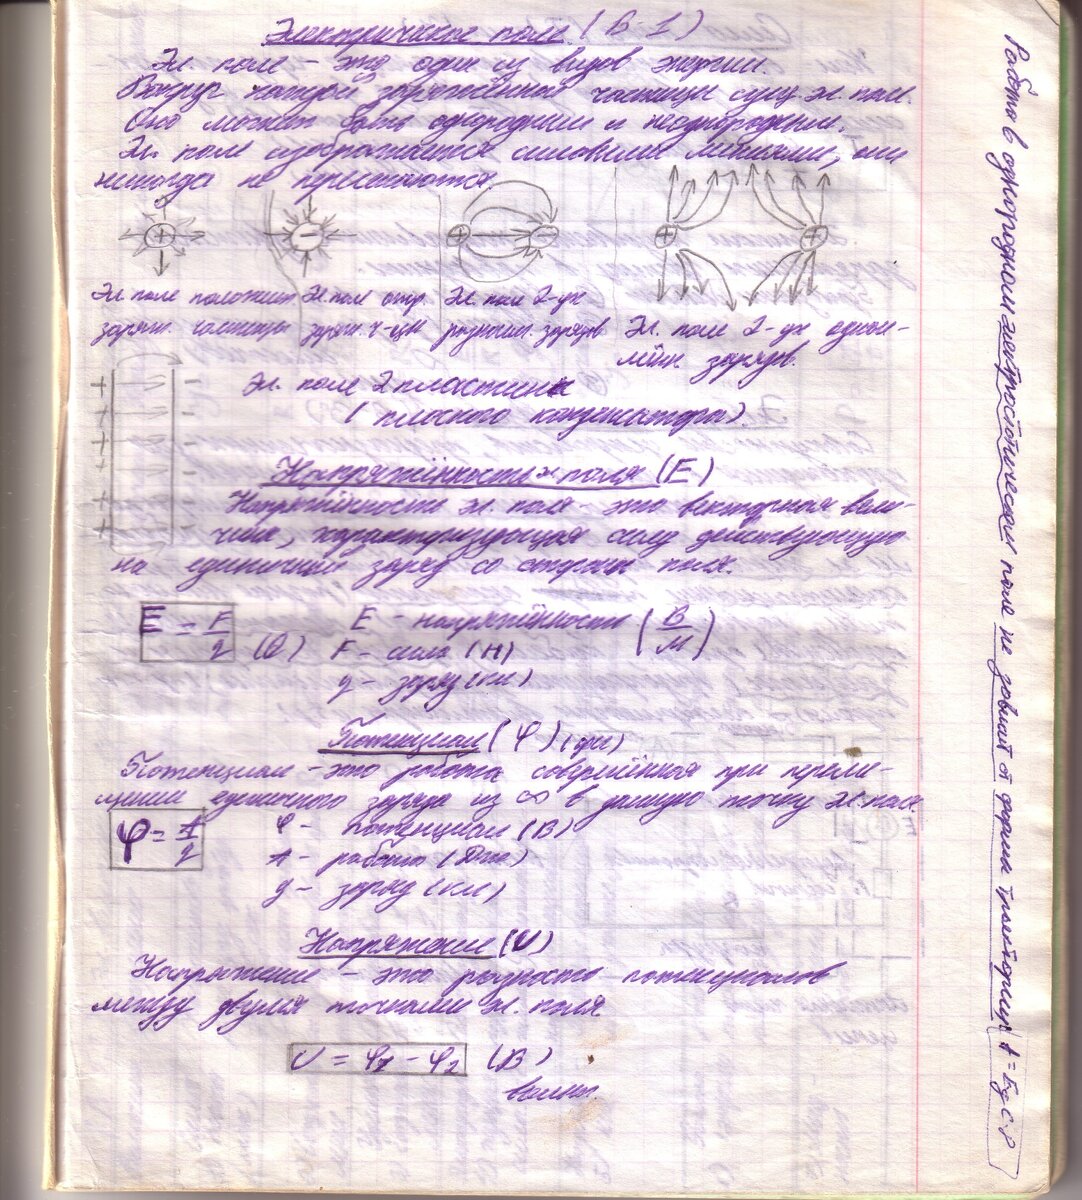 Электрическое поле (В-1)
Эл. поле - это один из видов энергии.
Вокруг каждой заряжённой частицы сущ. эл. поле.
Оно может быть однородным и неоднородным.
Эл. поле изображается силовыми линиями, они
никогда не пересекаются
+ - + - + +
Эл. поле положит. Эл. поле отр. Эл. поле 2-ух
заряж. частицы заряж. ч-цы разноим. зарядов Эл. поле 2-ух одно-
имён. зарядов.
Эл. поле 2 пластин
(плоского конденсатора).
Напряжённость поля (E)
Напряжённость эл. поля - это векторная вели-
чина, характеризующая силу действующую
на единичный заряд со стороны поля.
E = F/q (Q) E - напряжённость (В/м)
F - сила (Н)
q - заряд (Кл)
Потенциал (φ) (фи)
Потенциал - это работа совершённая при переме-
щении единичного заряда из ∞ в данную точку эл. поля
φ = A/q φ - потенциал (В)
A - работа (Дж)
q - заряд (Кл)
Напряжение (U)
Напряжение - это разность потенциалов
между двумя точками эл. поля.
U = φ1 - φ2 (В)
вольт.
Работа в однородном электростатическом поле не зависит от формы траектории